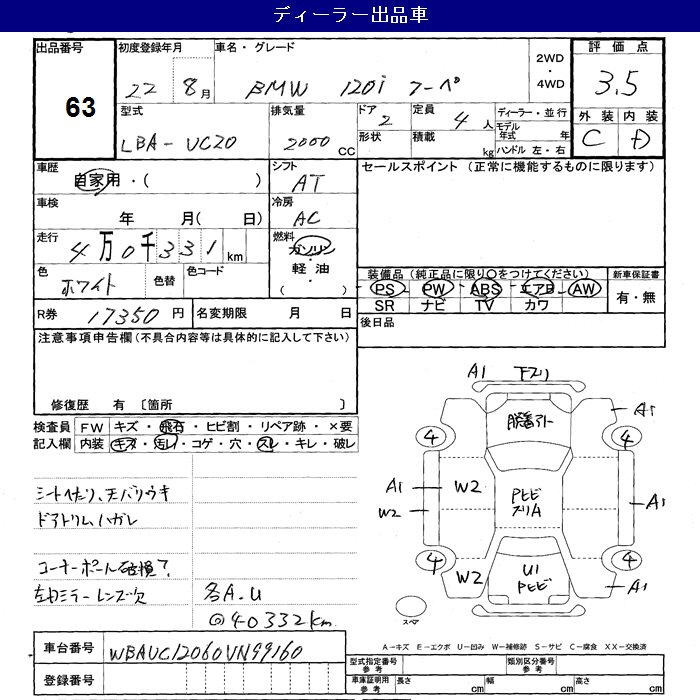 ディーラー出品車
出品番号
63
初度登録年月
22 8月
車名・グレード
BMW 120i クーペ
2WD
・
4WD
評価点
3.5
外装 内装
C D
型式
LBA-UC20
排気量
2000 CC
ドア
2
形状
定員
4人
積載
kg
ディーラー・並行
モデル年式 年
ハンドル 左・右
車歴
自家用・( )
シフト
AT
セールスポイント (正常に機能するものに限ります)
車検
年 月( 日)
冷房
AC
走行
4万0千331km
燃料
ガソリン
・
軽油
・
( )
色
ホワイト
色替
色コード
装備品(純正品に限り○をつけてください)
PS PW ABS エアB AW
SR ナビ TV カワ
新車保証書
有・無
R券 17350円
名変期限 月 日
後日品
注意事項申告欄(不具合内容等は具体的に記入して下さい)
修復歴 有 〔箇所 〕
検査員記入欄
FW キズ・飛石・ヒビ割・リペア跡・×要
内装 キズ・汚レ・コゲ・穴・スレ・キレ・破レ
シートヘタリ、天バリウキ
ドアトリムハガレ
コーナーポール破損?
左右ミラーレンズ欠
各A.U
@40332km
A1 下スリ
A1
4 4
A1 W2
W2
A1
4 4
W2
A1
Pヒビ
スリA
U1
Pヒビ
スペア
A-キズ E-エクボ U-凹み W-補修跡 S-サビ C-腐食 XX-交換済
車台番号
WBAUC12060VN99160
登録番号
型式指定番号
参考
類別区分番号
参考
車庫証明用
参考
長さ cm
幅 cm
高さ cm